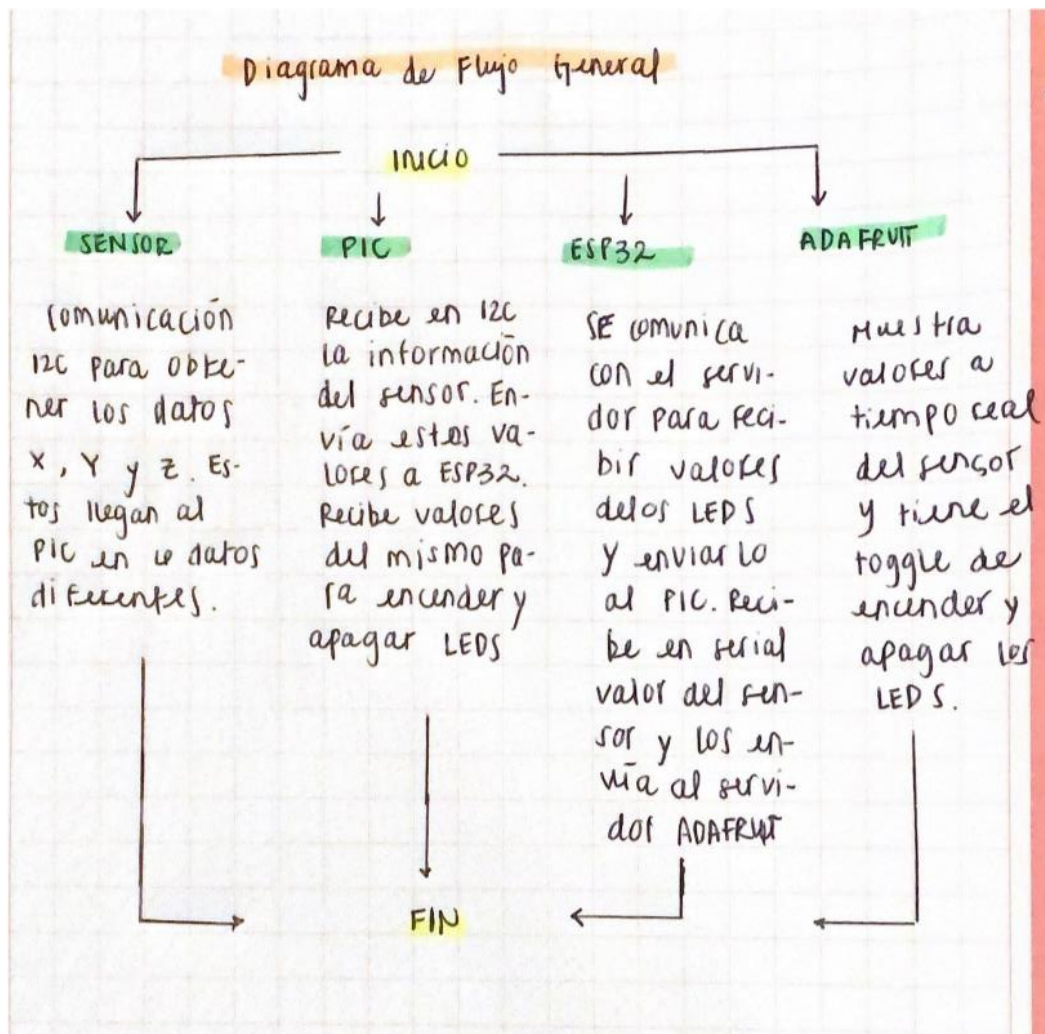 Diagrama de Flujo General
INICIO
SENSOR
Comunicación
I2C para obte-
ner los datos
X, Y y Z. Es-
tos llegan al
PIC en datos
diferentes.
PIC
Recibe en I2C
la información
del sensor. En-
vía estos va-
lores a ESP32.
Recibe valores
del mismo pa-
ra encender y
apagar LEDS
ESP32
SE comunica
con el servi-
dor para reci-
bir valores
delos LEDS
y enviarlo
al PIC. Reci-
be en serial
valor del sen-
sor y los en-
vía al servi-
dor ADAFRUIT
ADAFRUIT
Muestra
valores a
tiempo real
del sensor
y tiene el
toggle de
encender y
apagar los
LEDS.
FIN